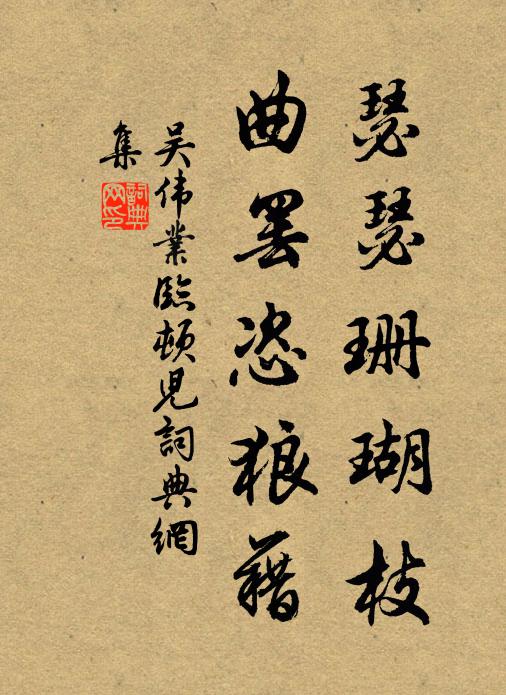 瑟瑟珊瑚枝
曲罢恣狼藉
吴伟業臨頓児詞典網
集
詞典
网印